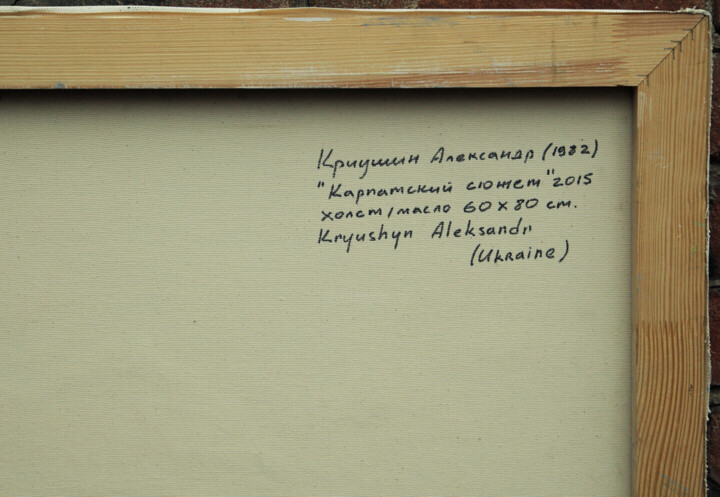 Криушин Александр (1982)
"Карпатский сюжет" 2015
холст/масло 60 х 80 см.
Kryushyn Aleksandr
(Ukraine)